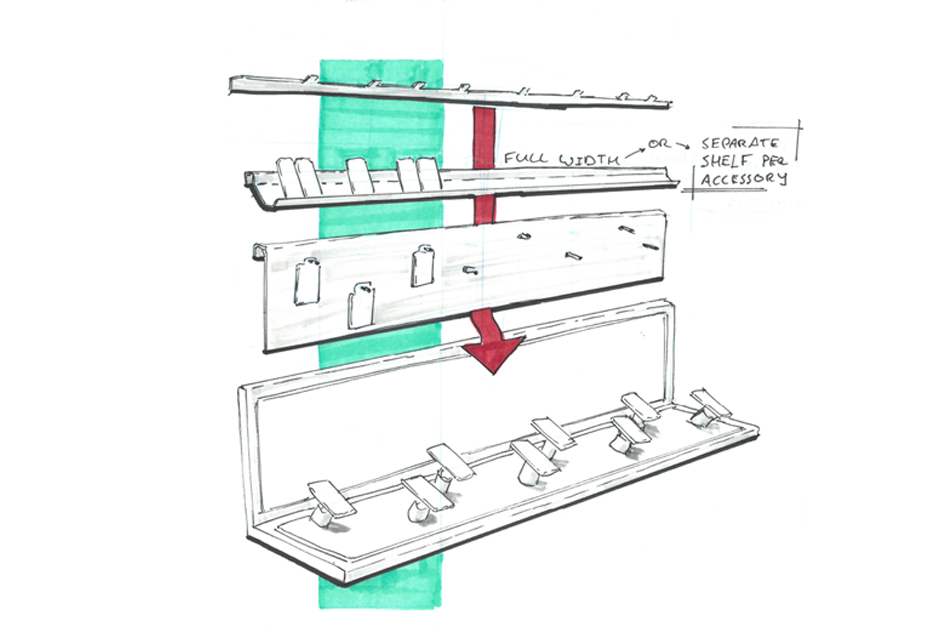 FULL WIDTH → OR → SEPARATE
SHELF PER
ACCESSORY